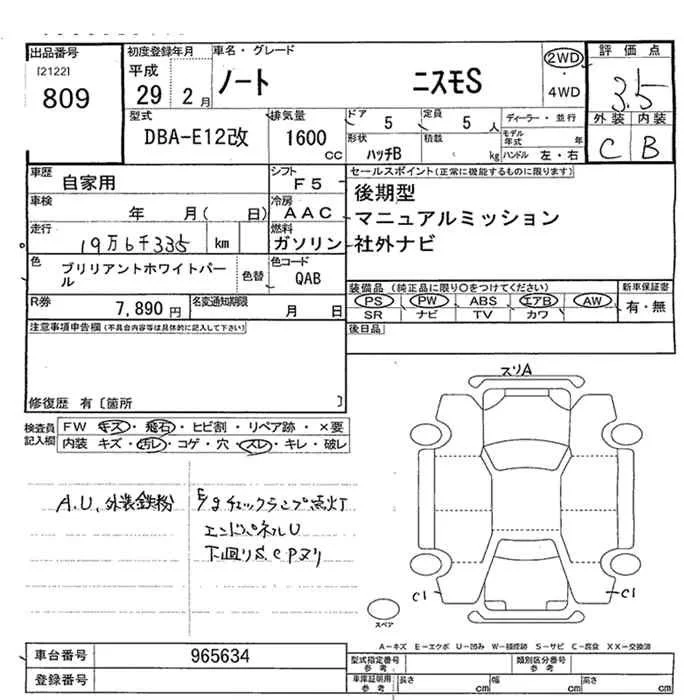 出品番号
[2122]
809
初度登録年月
平成
29 2月
車名・グレード
ノート ニスモS
2WD
・
4WD
評価点
3.5
外装 内装
C B
型式
DBA-E12改
排気量
1600
cc
ドア
5
定員
5 人
形状
ハッチB
積載
kg
ディーラー・並行
モデル年式 年
ハンドル 左・右
車歴
自家用
シフト
F5
車検
年 月( 日)
冷房
AAC
走行
19万6千335 km
燃料
ガソリン
色
ブリリアントホワイトパール
色替
色コード
QAB
R券
7,890円
名変通知期限
月 日
セールスポイント(正常に機能するものに限ります)
後期型
マニュアルミッション
社外ナビ
装備品 (純正品に限り○をつけてください)
PS PW ABS エアB AW
SR ナビ TV カワ
新車保証書
有・無
後日品
注意事項申告欄(不具合内容等は具体的に記入して下さい)
修復歴 有〔箇所 〕
検査員記入欄
FW キズ・飛石・ヒビ割・リペア跡・×要
内装 キズ・汚レ・コゲ・穴・スレ・キレ・破レ
A.U、外装鉄粉
E/gチェックランプ点灯
エンドパネルU
下回りS.C Pヌリ
スリA
C1
C1
スペア
A-キズ E-エクボ U-凹み W-補修跡 S-サビ C-腐食 XX-交換済
車台番号
965634
登録番号
型式指定番号
参考
類別区分番号
参考
車庫証明用
参考
長さ cm
幅 cm
高さ cm